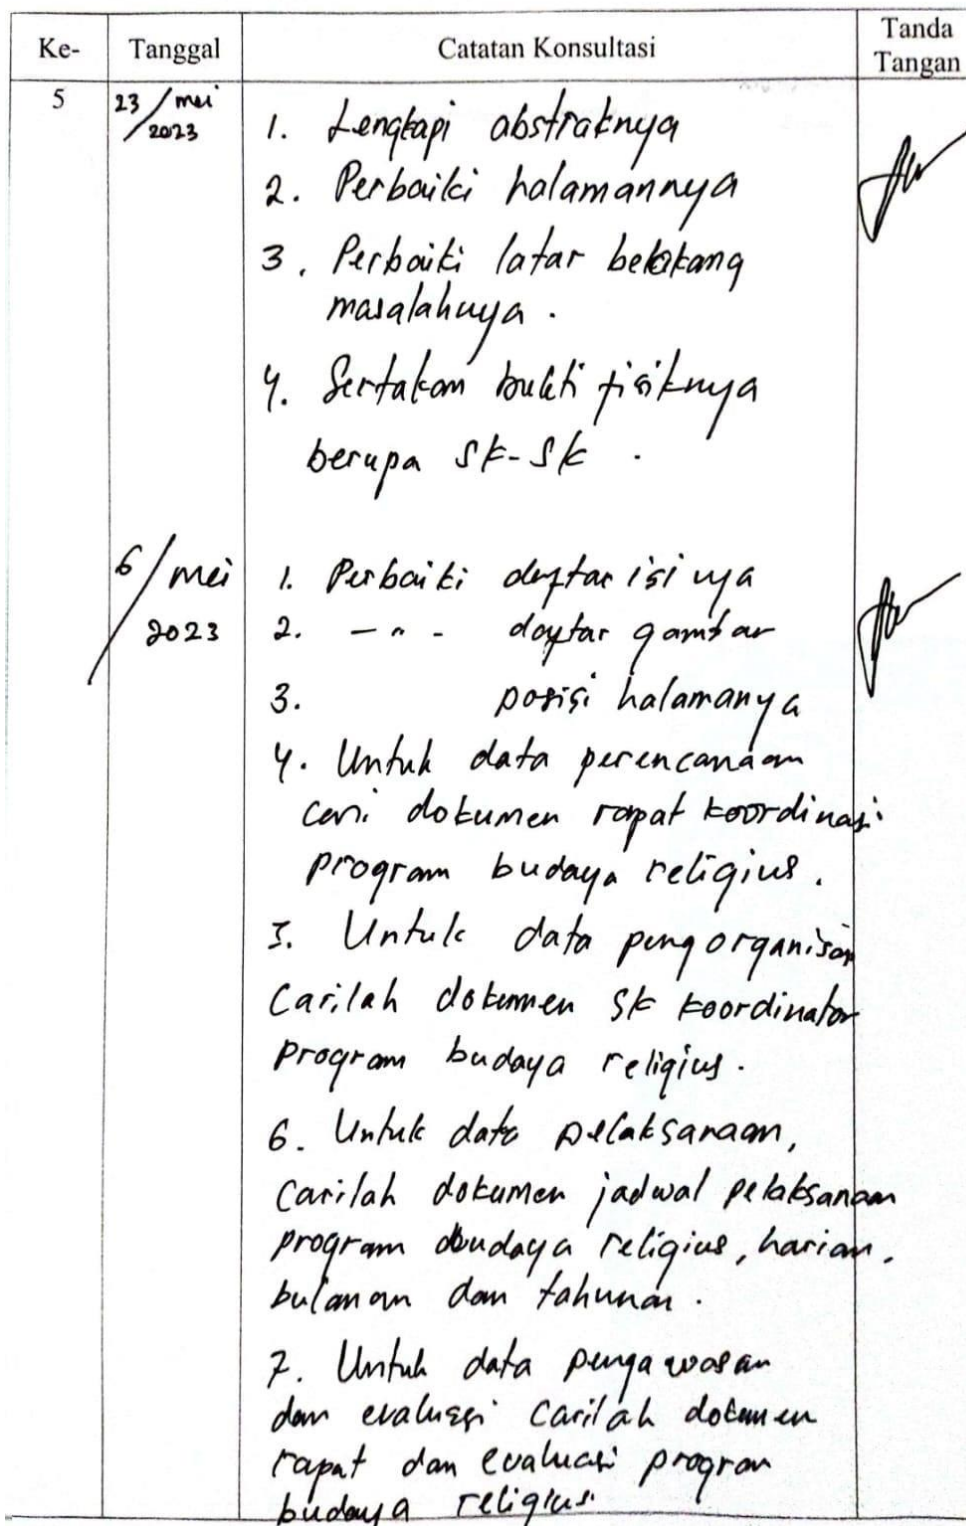 Ke- Tanggal Catatan Konsultasi Tanda Tangan
5 23/mei/2023
1. Lengkapi abstraknya
2. Perbaiki halamannya
3. Perbaiki latar belakang
masalahnya.
4. Sertakan bukti fisiknya
berupa SK-SK.
6/mei 2023
1. Perbaiki daftar isi nya
2. - " - daftar gambar
3. posisi halamanya
4. Untuk data perencanaan
cari dokumen rapat koordinasi
program budaya religius.
5. Untuk data pengorganisan
Carilah dokumen SK koordinator
program budaya religius.
6. Untuk data pelaksanaan,
Carilah dokumen jadwal pelaksanaan
program budaya religius, harian,
bulanan dan tahunan.
7. Untuk data pengawasan
dan evaluasi Carilah dokumen
rapat dan evaluasi program
budaya religius